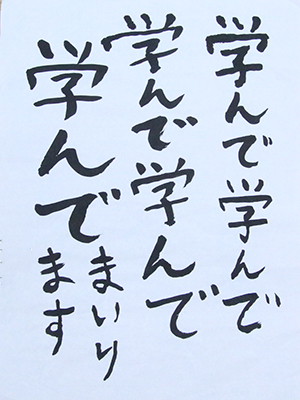 学んで学んで
学んで学んで
学んでまいり
ます